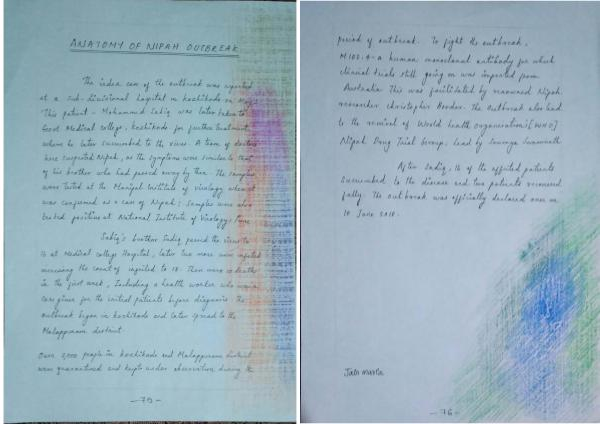 ANATOMY OF NIPAH OUTBREAK
The index case of the outbreak was reported
at a sub-divisional hospital in Kozhikode on May
This patient - Mohammed Sabiq was later taken to
Govt Medical college, Kozhikode for further treatment,
where he later succumbed to the virus. A team of doctors
here suspected Nipah, as the symptoms were similar to that
of his brother who had passed away by then. The samples
were tested at the Manipal Institute of virology where it
was confirmed as a case of Nipah; Samples were also
tested positive at National Institute of Virology, Pune
Sabiq's brother Sadiq passed the virus to
16 at Medical college Hospital, later two more were infected
increasing the count of infected to 18. There were 10 deaths
in the first week, Including a health worker who was
care giver for the initial patients before diagnosis. The
outbreak began in Kozhikode and later spread to the
Malappuram district.
Over 2,000 people in Kozhikode and Malappuram district
were quarantined and kept under observation during the
-75-
period of outbreak. To fight the outbreak,
M102.4 - a human monoclonal antibody for which
clinical trials still going on was imported from
Australia. This was facilitated by renowned Nipah
researcher Christopher Broder. The Outbreak also lead
to the revival of World Health Organisation's [WHO]
Nipah Drug Trial Group, lead by Soumya Swaminath
After Sadiq, 16 of the affected patients
succumbed to the disease and two patients recovered
fully. The outbreak was officially declared over on
10 June 2018.
-76-